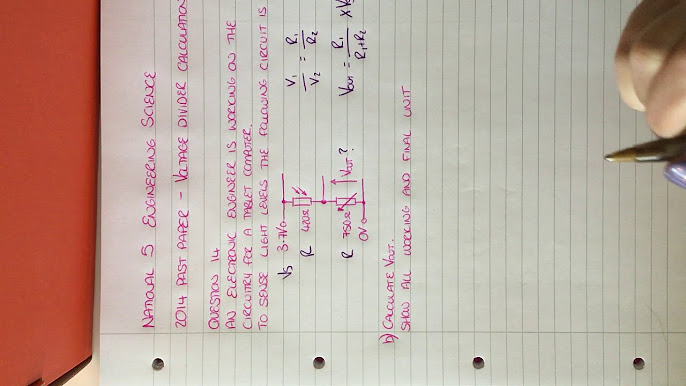 NATIONAL 5 ENGINEERING SCIENCE
2014 PAST PAPER - VOLTAGE DIVIDER CALCULATION
QUESTION 14
AN ELECTRONIC ENGINEER IS WORKING ON THE
CIRCUITRY FOR A TABLET COMPUTER.
TO SENSE LIGHT LEVELS THE FOLLOWING CIRCUIT IS
VS 3.7V
R 420Ω
R 750Ω
VOUT?
0V
V1/V2 = R1/R2
VOUT = R1/R1+R2 × V
b) CALCULATE VOUT.
SHOW ALL WORKING AND FINAL UNIT